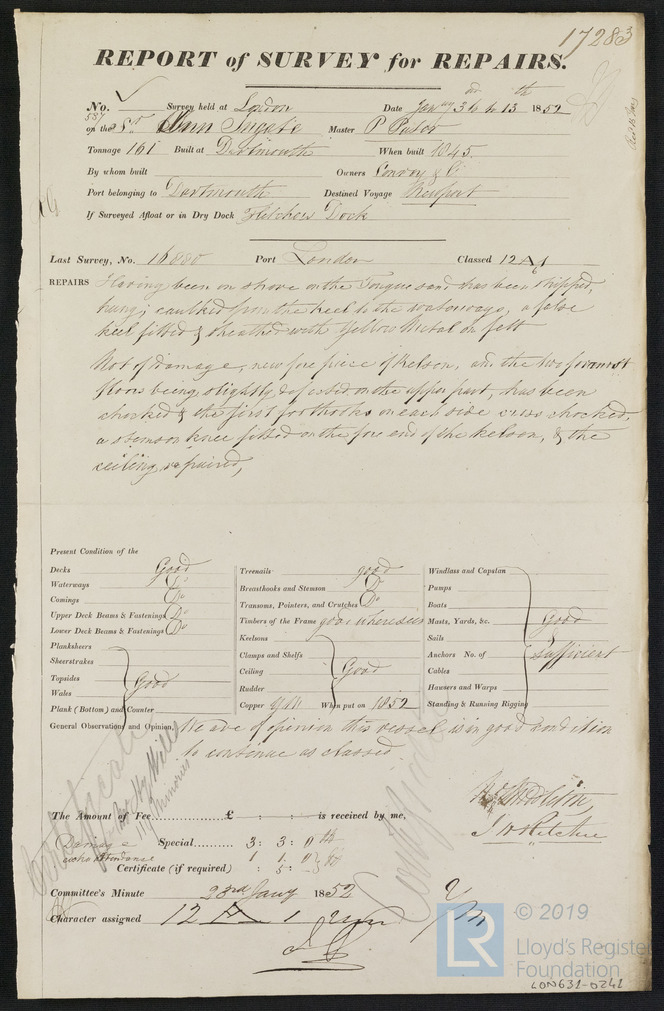 17283
REPORT of SURVEY for REPAIRS.
No. 537 Survey held at London Date Jany 3rd to 13th 1852
on the Sr. Ann Ingate Master P
Tonnage 161 Built at Dartmouth When built 1845.
By whom built Owners Conroy & Co
Port belonging to Dartmouth Destined Voyage Newport
If Surveyed Afloat or in Dry Dock Fletchers Dock
Last Survey, No. 16880 Port London Classed 12 A1
REPAIRS Having been on shore on the Tongue sand has been stripped,
hung; caulked from the keel to the waterways, a false
keel fitted & sheathed with Yellow Metal on felt
Not of damage, new fore piece of Kelson, and the two foremost
floors being slightly defected on the upper part, has been
chocked & the first foothooks on each side cross chocked,
a stemson knee fitted on the fore end of the kelson, & the
ceiling repaired,
Present Condition of the
Decks Good
Waterways Do
Comings Do
Upper Deck Beams & Fastenings Do
Lower Deck Beams & Fastenings Do
Planksheers
Sheerstrakes
Topsides
Wales
Plank (Bottom) and Counter
Good
Treenails good
Breasthooks and Stemson Do
Transoms, Pointers, and Crutches Do
Timbers of the Frame good where seen
Keelsons
Clamps and Shelfs
Ceiling
Rudder
Good
Copper YM When put on 1852
Windlass and Capstan
Pumps
Boats
Masts, Yards, &c.
Sails
Anchors No. of
Cables
Hawsers and Warps
Standing & Running Rigging
Good
Sufficient
General Observations and Opinion We are of opinion this vessel is in good condition
to continue as classed
Certificate
Minories
The Amount of Fee £ : : is received by me,
Damage Special 3 : 3 : 0
attendance 1 1 0
Certificate (if required) : 5 :
J W Ritchie
Committee's Minute 23rd Jany 1852
Character assigned 12 A 1
© 2019
LR
Lloyd's Register
Foundation
LON631-0241